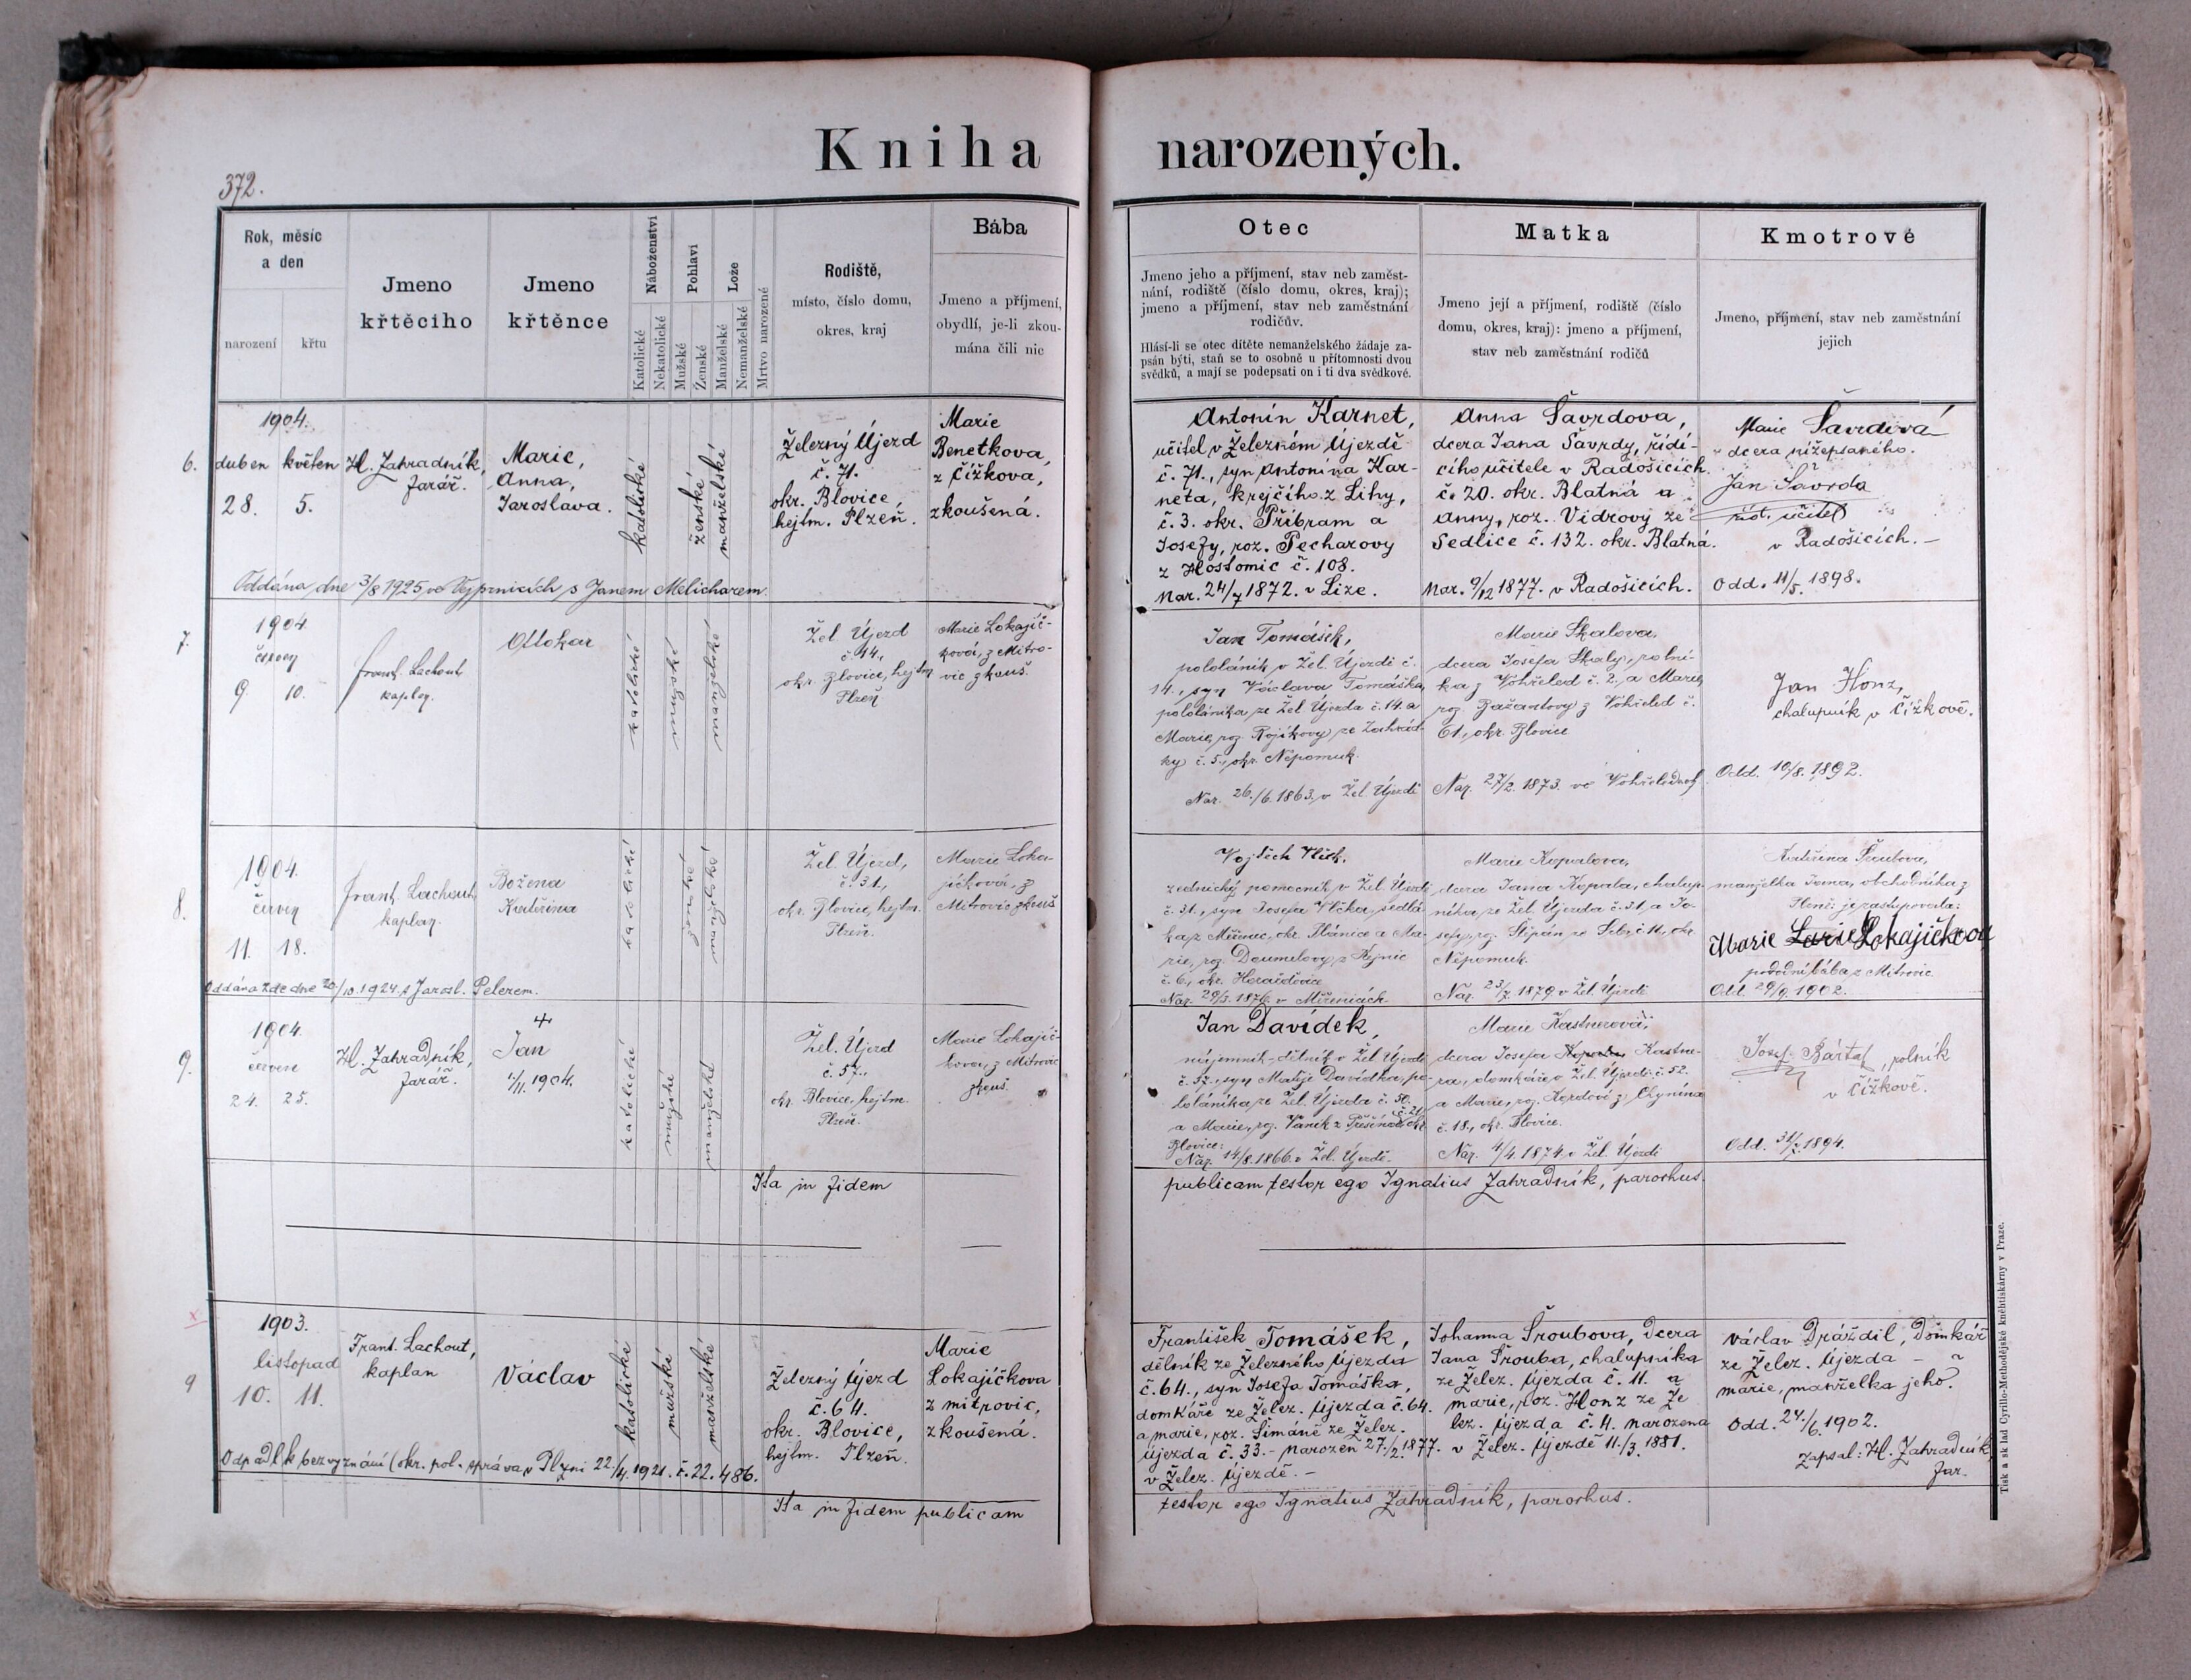 372.
Kniha narozených.
Rok, měsíc
a den
narození
křtu
Jmeno
křtěcího
Jmeno
křtěnce
Náboženství
Katolické
Nekatolické
Pohlaví
Mužské
Ženské
Lože
Manželské
Nemanželské
Mrtvo narozené
Rodiště,
místo, číslo domu,
okres, kraj
Bába
Jmeno a příjmení,
obydlí, je-li zkou-
mána čili nic
Otec
Jmeno jeho a příjmení, stav neb zaměst-
nání, rodiště (číslo domu, okres, kraj);
jmeno a příjmení, stav neb zaměstnání
rodičův.
Hlásí-li se otec dítěte nemanželského žádaje za-
psán býti, staň se to osobně u přítomnosti dvou
svědků, a mají se podepsati on i ti dva svědkové.
Matka
Jmeno její a příjmení, rodiště (číslo
domu, okres, kraj): jmeno a příjmení,
stav neb zaměstnání rodičů
Kmotrové
Jmeno, příjmení, stav neb zaměstnání
jejich
6.
1904.
duben květen
28. 5.
H. Zahradník,
farář.
Marie,
Anna,
Jaroslava.
katolické
ženské
manželské
Železný Újezd
č. 71.
okr. Blovice,
hejtm. Plzeň.
Marie
Benetkova,
z Čížkova,
zkoušená.
Antonín Karnet,
učitel v Železném Újezdě
č. 71., syn Antonína Kar-
neta, krejčího z Lihy,
č. 3. okr. Příbram a
Josefy, roz. Pecharovy
z Hostomic č. 108.
Nar. 24/7 1872. v Lize.
Anna Šavrdova,
dcera Jana Šavrdy, řídí-
cího učitele v Radošicích
č. 20. okr. Blatná a
Anny, roz. Vidrovy ze
Sedlice č. 132. okr. Blatná.
Nar. 9/12 1877. v Radošicích.
Marie Šavrdová
dcera nížepsaného.
Jan Šavrda
říd. učitel
v Radošicích.
Odd. 11/5. 1898.
Oddána dne 3/8 1925 ve Vejprnicích s Janem Melicharem.
7.
1904
červen
9. 10.
Frant. Lachout
kaplan.
Ottokar
katolické
mužské
manželské
Žel. Újezd
č. 14.,
okr. Blovice, hejtm
Plzeň
Marie Lokajíč-
ková, z Mitro-
vic zkouš.
Jan Tomášek,
pololáník v Žel. Újezdě č.
14., syn Václava Tomáška,
pololáníka ze Žel. Újezda č. 14. a
Marie, roz. Kojíkovy ze Zahrád-
ky č. 5., okr. Nepomuk.
Nar. 26./6. 1863, v Žel. Újezdě
Marie Skalova,
dcera Josefa Skaly, rolní-
ka z Vohřeled č. 2., a Marie,
roz. Bažantovy z Vohřeled č.
61., okr. Blovice
Nar. 27/2. 1873. ve
Jan Honz,
chalupník v Čížkově.
Odd. 10/8. 1892.
8.
1904.
červen
11. 18.
Frant. Lachout,
kaplan.
Božena
Kateřina
katolické
ženské
manželské
Žel. Újezd,
č. 31.,
okr. Blovice, hejtm.
Plzeň.
Marie Loka-
jíčková, z
Mitrovic zkouš
Vojtěch Vlček,
zednický pomocník v Žel. Újezdě
č. 31., syn Josefa Vlčka, sedlá-
ka z okr. Plánice a Ma-
rie, roz.
č. 6., okr. Horažďovice
Nar. 1876. v
Marie Kopalova,
dcera Jana Kopala, chalup-
níka ze Žel. Újezda č. 31, a Jo-
sefy, roz. Štěpán ze č. 11., okr.
Nepomuk.
Nar. 23/7. 1879. v Žel. Újezdě
Kateřina Šroubova,
manželka Jana, obchodníka z
je zastupovala:
Marie Lokajíčková
porodní bába z Mitrovic
Odd. 29/9. 1902.
Oddána zde dne 20/10. 1924. s Jarosl. Pelerem.
9.
1904.
červen
24. 25.
H. Zahradník,
farář.
Jan
1/11. 1904.
katolické
mužské
manželské
Žel. Újezd
č. 57.,
okr. Blovice, hejtm.
Plzeň.
Marie Lokajíč-
kova, z Mitrovic
zkouš
Jan Davídek,
nájemník-dělník v Žel. Újezdě
č. 57., syn Matěje Davídka, po-
loláníka ze Žel. Újezda č. 50.
a Marie, roz. Vaněk z č. 21. okr.
Blovice:
Nar. 14/8. 1866. v Žel. Újezdě.
Marie Kastnerová,
dcera Josefa Kastne-
ra, domkáře v Žel. Újezdě č. 52.
a Marie, roz. z Chynína
č. 18., okr. Blovice.
Nar. 4/4. 1874. v Žel. Újezdě
Josef Bárta, rolník
v Čížkově.
Odd. 31/7. 1894.
Ita in fidem publicam testor ego Ignatius Zahradník, parochus.
9
1903.
listopad
10. 11.
Frant. Lachout,
kaplan
Václav
katolické
mužské
manželské
Železný Újezd
č. 64.
okr. Blovice,
hejtm. Plzeň.
Marie
Lokajíčkova
z Mitrovic,
zkoušená.
František Tomášek,
dělník ze Železného Újezda
č. 64., syn Josefa Tomáška,
domkáře ze Želez. Újezda č. 64.
a Marie, roz. Šimáně ze Želez.
Újezda č. 33. - Narozen 27./2. 1877.
v Želez. Újezdě. -
Johanna Šroubova, dcera
Jana Šrouba, chalupníka
ze Želez. Újezda č. 11. a
Marie, roz. Honz ze Že
lez. Újezda č. 4. Narozena
v Želez. Újezdě 11./3. 1881.
Václav Dráždil, domkář
ze Želez. Újezda - a
Marie, manželka jeho.
Odd. 24./6. 1902.
Zapsal: H. Zahradník
far.
Odpadl k bezvyznání (okr. pol. správa v Plzni 22./4. 1921. č. 22.486.
Ita in fidem publicam testor ego Ignatius Zahradník, parochus.
Tisk a sklad Cyrillo-Methodějské kněhtiskárny v Praze.